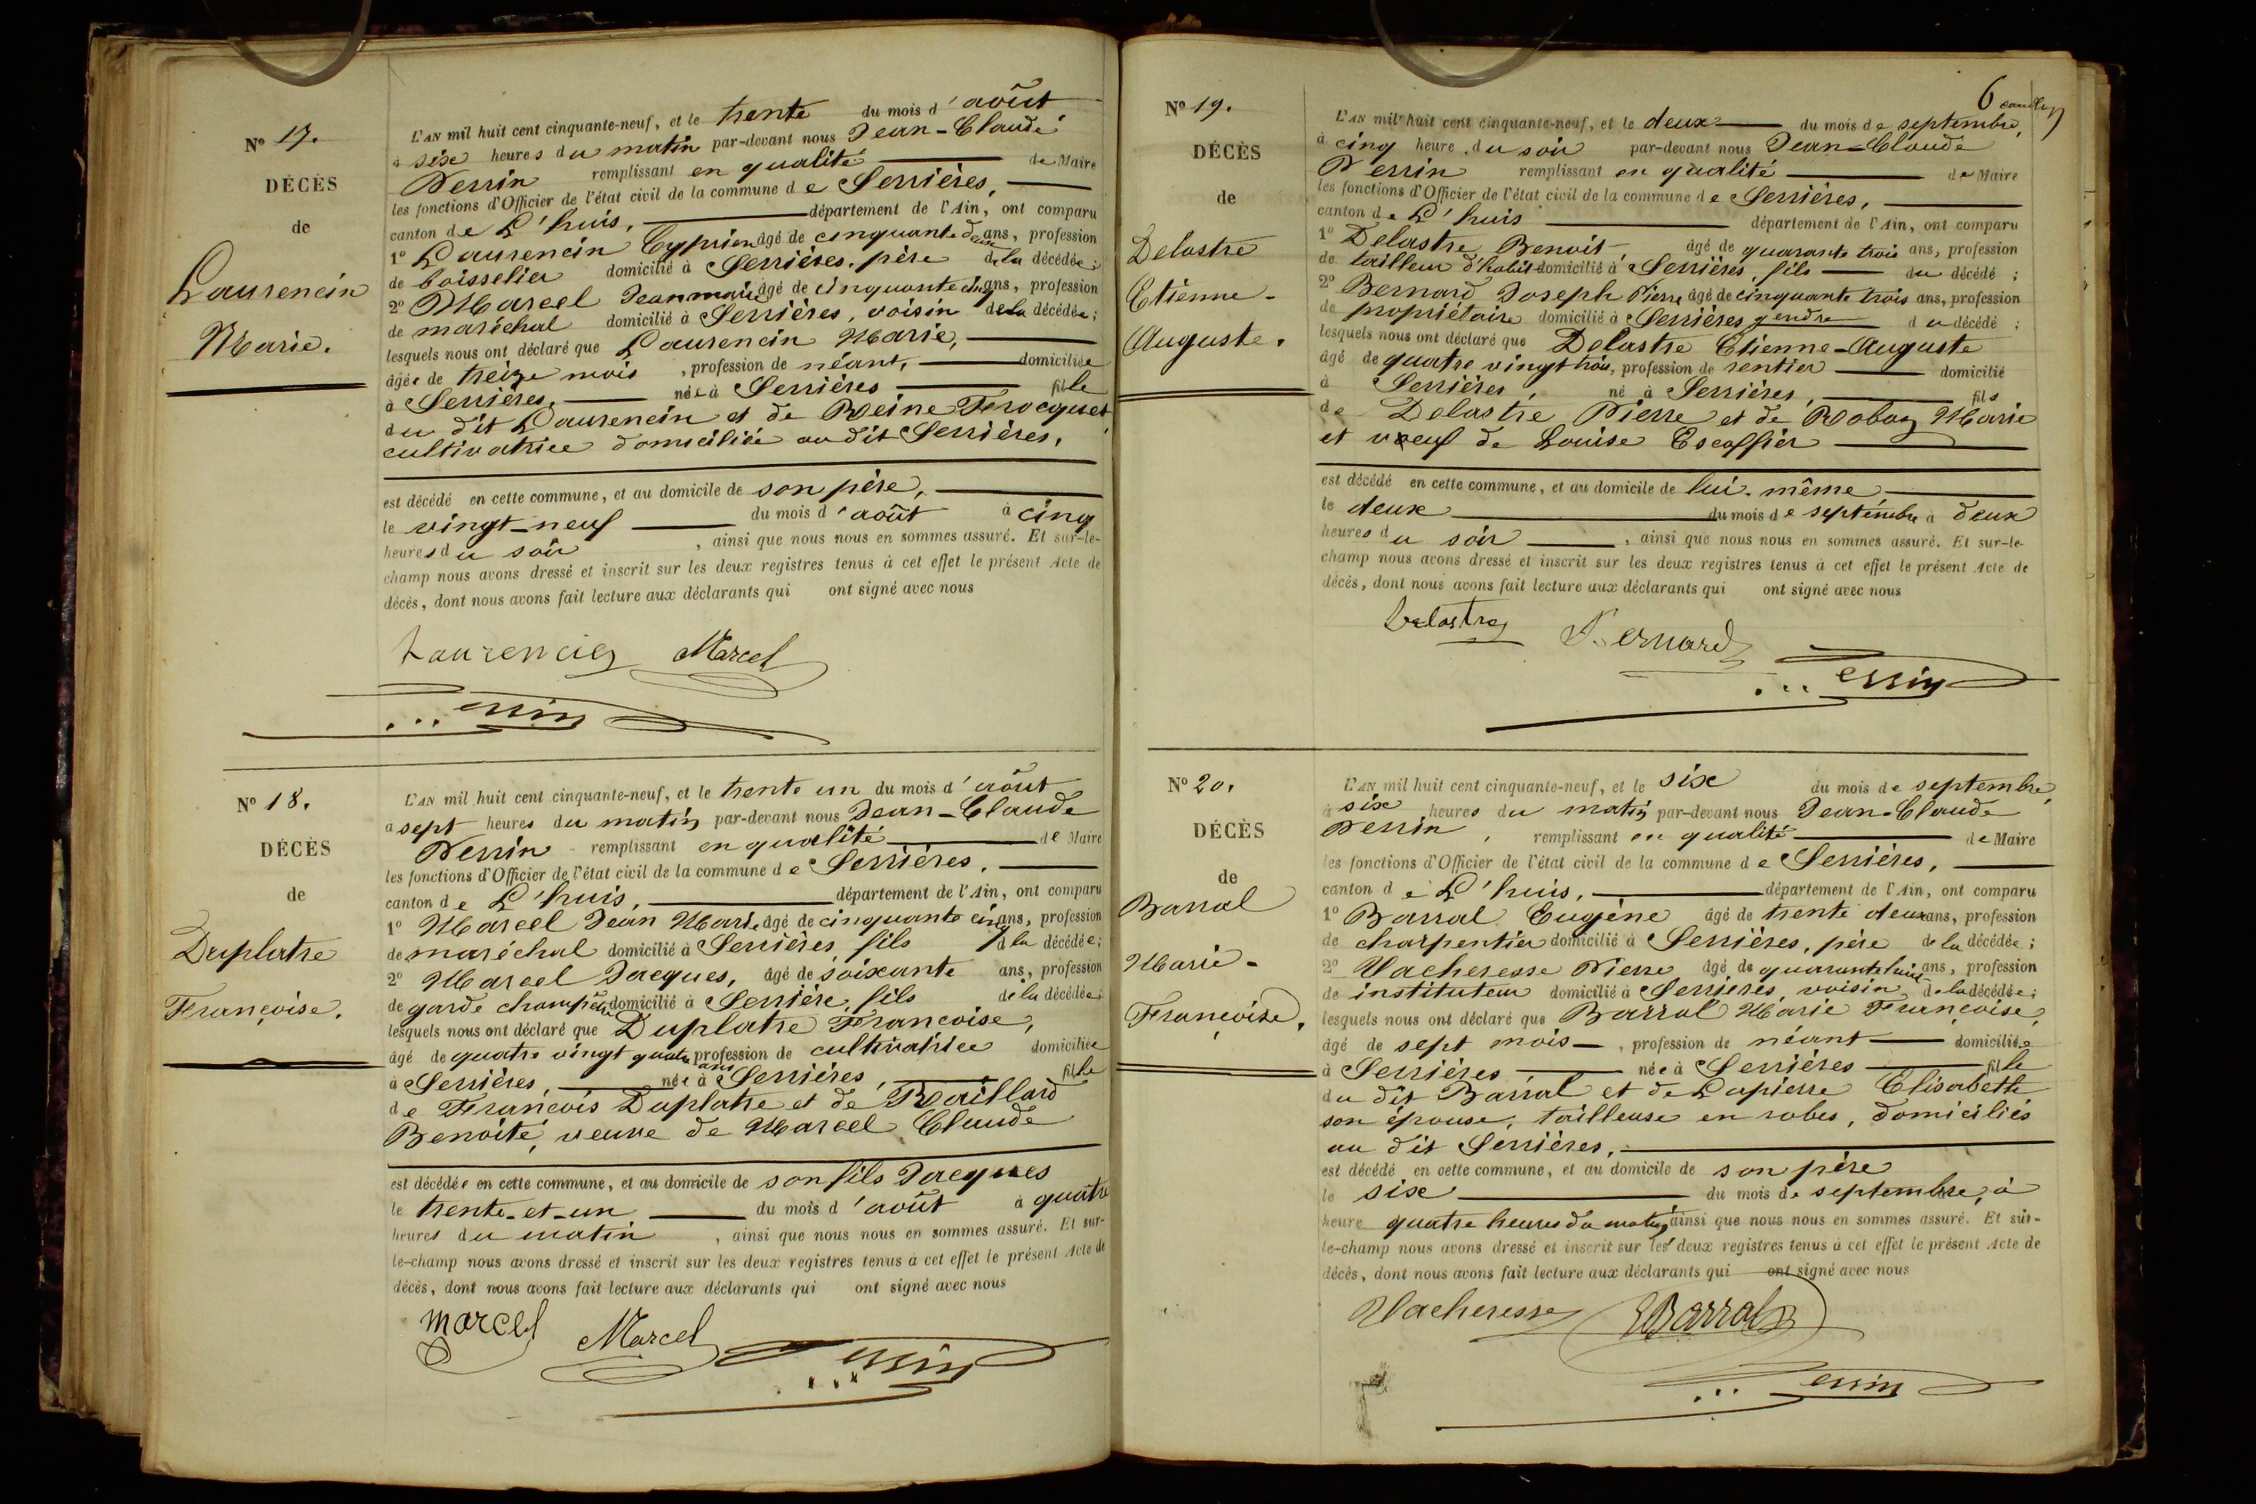 Nº 17.
DÉCÈS
de
Laurencin
Marie.
L'AN mil huit cent cinquante-neuf, et le trente du mois d'août
à six heures du matin par-devant nous Jean-Claude
Perrin remplissant en qualité de Maire
les fonctions d'Officier de l'état civil de la commune de Serrières,
canton de L'huis, département de l'Ain, ont comparu
1º Laurencin Cyprien âgé de cinquante deux ans, profession
de boisselier domicilié à Serrières, père de la décédée;
2º Marcel Jean marie âgé de cinquante cinq ans, profession
de maréchal domicilié à Serrières, voisin de la décédée;
lesquels nous ont déclaré que Laurencin Marie,
âgée de treize mois, profession de néant, domiciliée
à Serrières, née à Serrières fille
du dit Laurencin et de Reine Frocquet,
cultivatrice domiciliée au dit Serrières,
est décédé en cette commune, et au domicile de son père,
le vingt-neuf du mois d'août à cinq
heures du soir, ainsi que nous nous en sommes assuré. Et sur-le-
champ nous avons dressé et inscrit sur les deux registres tenus à cet effet le présent Acte de
décès, dont nous avons fait lecture aux déclarants qui ont signé avec nous
Laurencin Marcel
Perrin
Nº 18.
DÉCÈS
de
Duplatre
Françoise.
L'AN mil huit cent cinquante-neuf, et le trente un du mois d'août
à sept heures du matin par-devant nous Jean-Claude
Perrin remplissant en qualité de Maire
les fonctions d'Officier de l'état civil de la commune de Serrières,
canton de L'huis, département de l'Ain, ont comparu
1º Marcel Jean Marie âgé de cinquante cinq ans, profession
de maréchal domicilié à Serrières, fils de la décédée;
2º Marcel Jacques, âgé de soixante ans, profession
de garde champêtre domicilié à Serrière, fils de la décédée;
lesquels nous ont déclaré que Duplatre Françoise,
âgé de quatre vingt quatre ans profession de cultivatrice domiciliée
à Serrières, née à Serrières, fille
de François Duplatre et de Baillard
Benoîte, veuve de Marcel Claude
est décédée en cette commune, et au domicile de son fils Jacques
le trente-et-un du mois d'août à quatre
heures du matin, ainsi que nous nous en sommes assuré. Et sur-
le-champ nous avons dressé et inscrit sur les deux registres tenus à cet effet le présent Acte de
décès, dont nous avons fait lecture aux déclarants qui ont signé avec nous
marcel Marcel Perrin
6
Nº 19.
DÉCÈS
de
Delastre
Etienne-
Auguste.
L'AN mil huit cent cinquante-neuf, et le deux du mois de septembre,
à cinq heure du soir par-devant nous Jean-Claude
Perrin remplissant en qualité de Maire
les fonctions d'Officier de l'état civil de la commune de Serrières,
canton de L'huis département de l'Ain, ont comparu
1º Delastre Benoit, âgé de quarante trois ans, profession
de tailleur d'habits domicilié à Serrières, fils du décédé;
2º Bernard Joseph Pierre âgé de cinquante trois ans, profession
de propriétaire domicilié à Serrières gendre du décédé;
lesquels nous ont déclaré que Delastre Etienne-Auguste
âgé de quatre vingt trois, profession de rentier domicilié
à Serrières, né à Serrières, fils
de Delastre Pierre et de Marie
et veuf de Louise Escoffier
est décédé en cette commune, et au domicile de lui-même
le deux du mois de septembre à deux
heures du soir, ainsi que nous nous en sommes assuré. Et sur-le-
champ nous avons dressé et inscrit sur les deux registres tenus à cet effet le présent Acte de
décès, dont nous avons fait lecture aux déclarants qui ont signé avec nous
Delastre Bernard
Perrin
Nº 20.
DÉCÈS
de
Barral
Marie-
Françoise.
L'AN mil huit cent cinquante-neuf, et le six du mois de septembre,
à six heures du matin par-devant nous Jean-Claude
Perrin, remplissant en qualité de Maire
les fonctions d'Officier de l'état civil de la commune de Serrières,
canton de L'huis, département de l'Ain, ont comparu
1º Barral Eugène âgé de trente deux ans, profession
de charpentier domicilié à Serrières, père de la décédée;
2º Vacheresse Pierre âgé de quarante huit ans, profession
de instituteur domicilié à Serrières, voisin de la décédée;
lesquels nous ont déclaré que Barral Marie Françoise,
âgé de sept mois, profession de néant domiciliée
à Serrières, née à Serrières fille
du dit Barral et de Lapierre Elisabeth
son épouse, tailleuse en robes, domiciliés
au dit Serrières,
est décédé en cette commune, et au domicile de son père
le six du mois de septembre, à
heure quatre heures du matin, ainsi que nous nous en sommes assuré. Et sur-
le-champ nous avons dressé et inscrit sur les deux registres tenus à cet effet le présent Acte de
décès, dont nous avons fait lecture aux déclarants qui ont signé avec nous
Vacheresse EBarral
Perrin